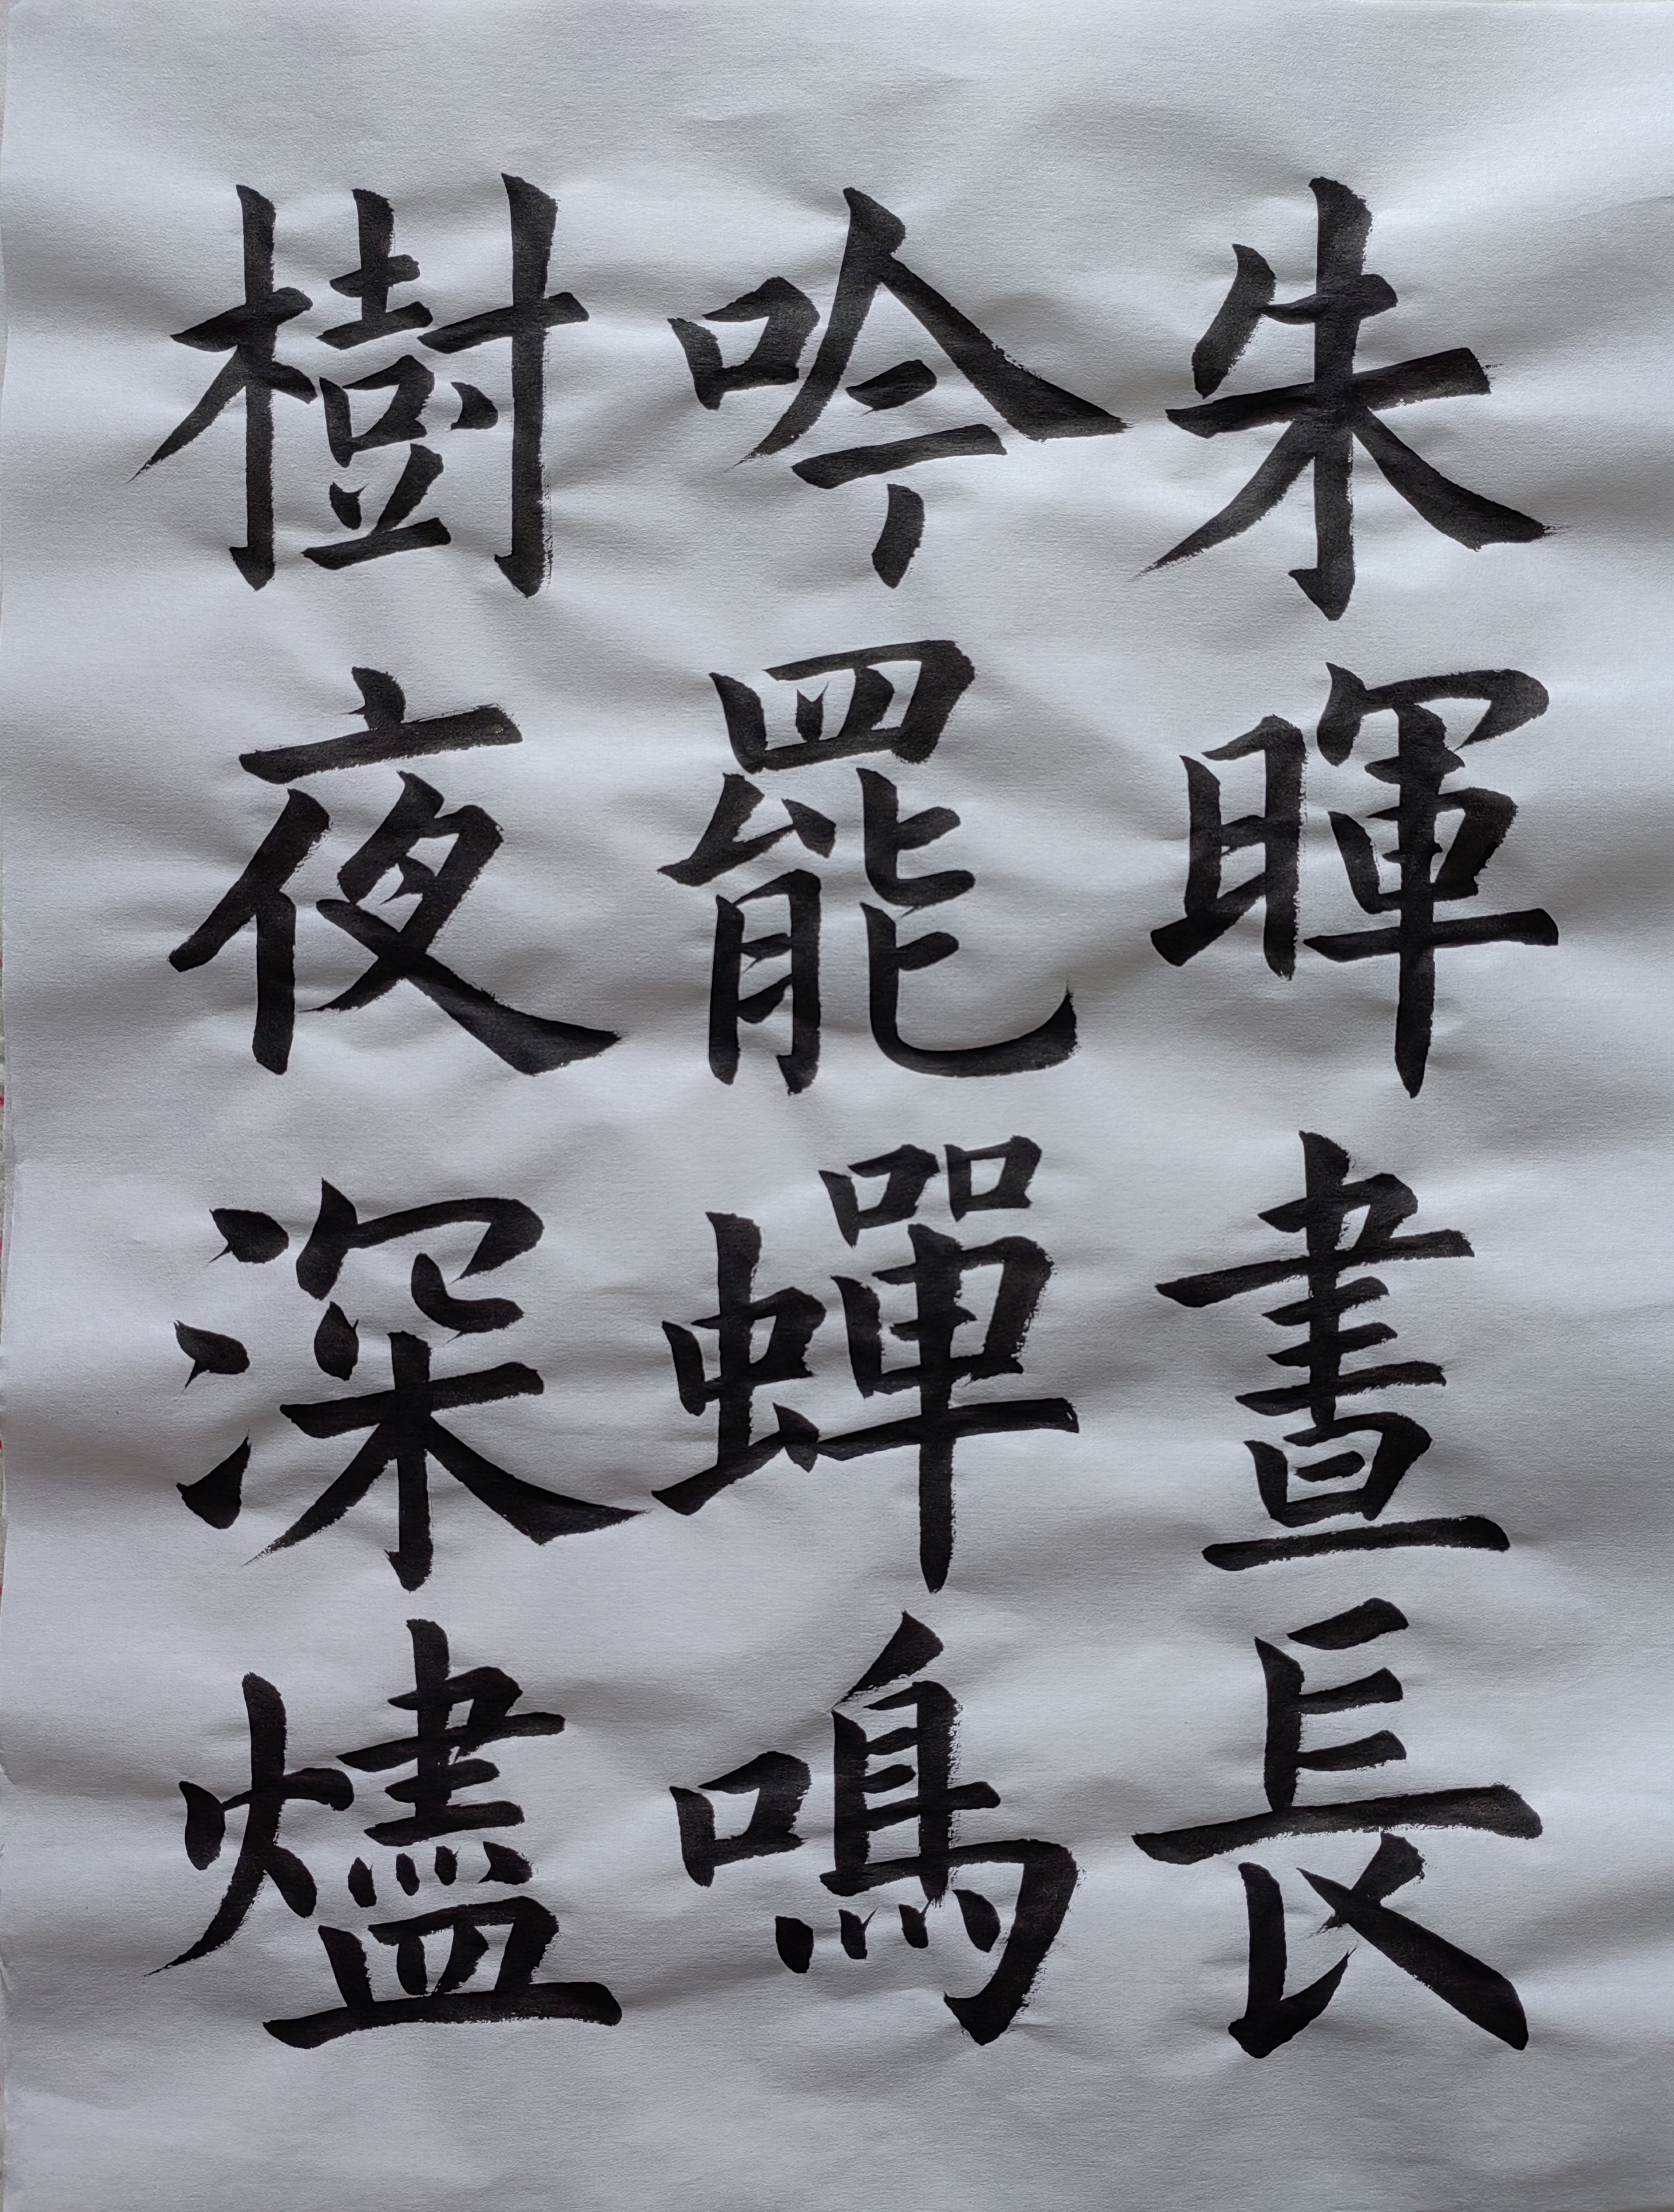 朱暉晝長
吟罷蟬鳴
樹夜深燼